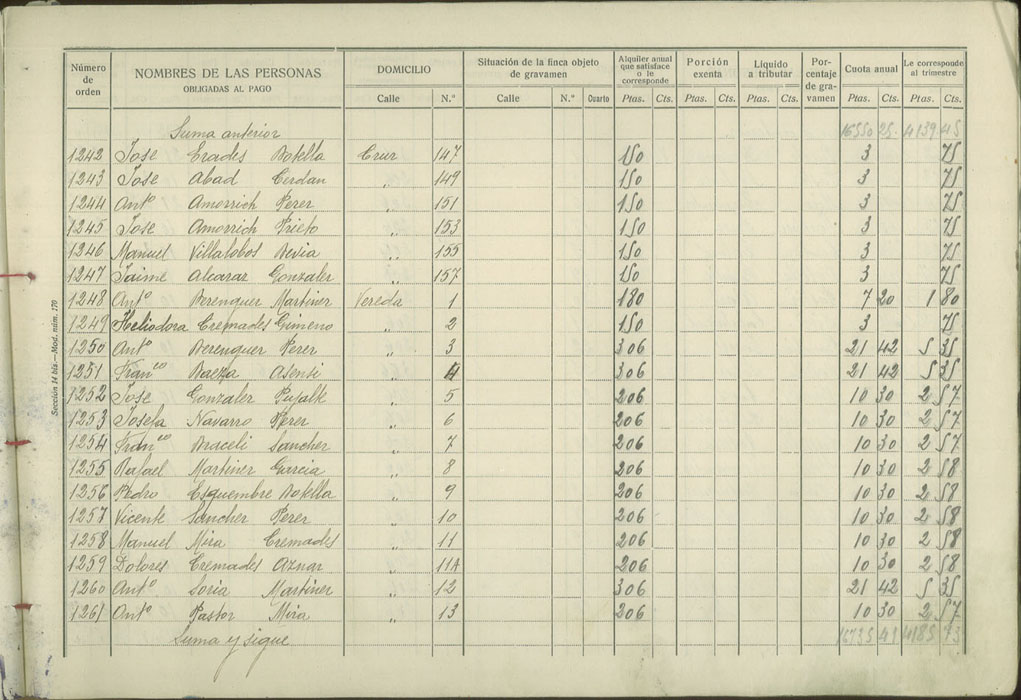 Número de orden NOMBRES DE LAS PERSONAS OBLIGADAS AL PAGO DOMICILIO Situación de la finca objeto de gravamen Alquiler anual que satisface o le corresponde Porción exenta Líquido a tributar Por-centaje de gra-vamen Cuota anual Le corresponde al trimestre
Calle N.º Calle N.º Cuarto Ptas. Cts. Ptas. Cts. Ptas. Cts. Ptas. Cts. Ptas. Cts.
Suma anterior 16550 25 4139 45
1242 Jose Erades Botella Cruz 147 150 3 75
1243 Jose Abad Cerdan " 149 150 3 75
1244 Antº Amorrich Perez " 151 150 3 75
1245 Jose Amorrich Prieto " 153 150 3 75
1246 Manuel Villalobos Nevia " 155 150 3 75
1247 Jaime Alcaraz Gonzalez " 157 150 3 75
1248 Antº Berenguer Martinez Vereda 1 180 7 20 1 80
1249 Heliodora Cremades Gimeno " 2 150 3 75
1250 Antº Berenguer Perez " 3 306 21 42 5 35
1251 Franco Baeza Asensi " 4 306 21 42 5 35
1252 Jose Gonzalez Pujalte " 5 206 10 30 2 57
1253 Josefa Navarro Perez " 6 206 10 30 2 57
1254 Franco Braceli Sanchez " 7 206 10 30 2 57
1255 Rafael Martinez Garcia " 8 206 10 30 2 58
1256 Pedro Esquembre Botella " 9 206 10 30 2 58
1257 Vicente Sanchez Perez " 10 206 10 30 2 58
1258 Manuel Mira Cremades " 11 206 10 30 2 58
1259 Dolores Cremades Aznar " 11A 206 10 30 2 58
1260 Antº Soria Martinez " 12 306 21 42 5 35
1261 Antº Pastor Mira " 13 206 10 30 2 57
Suma y sigue 16735 41 4185 73
Sección 14 bis.—Mod. núm. 170